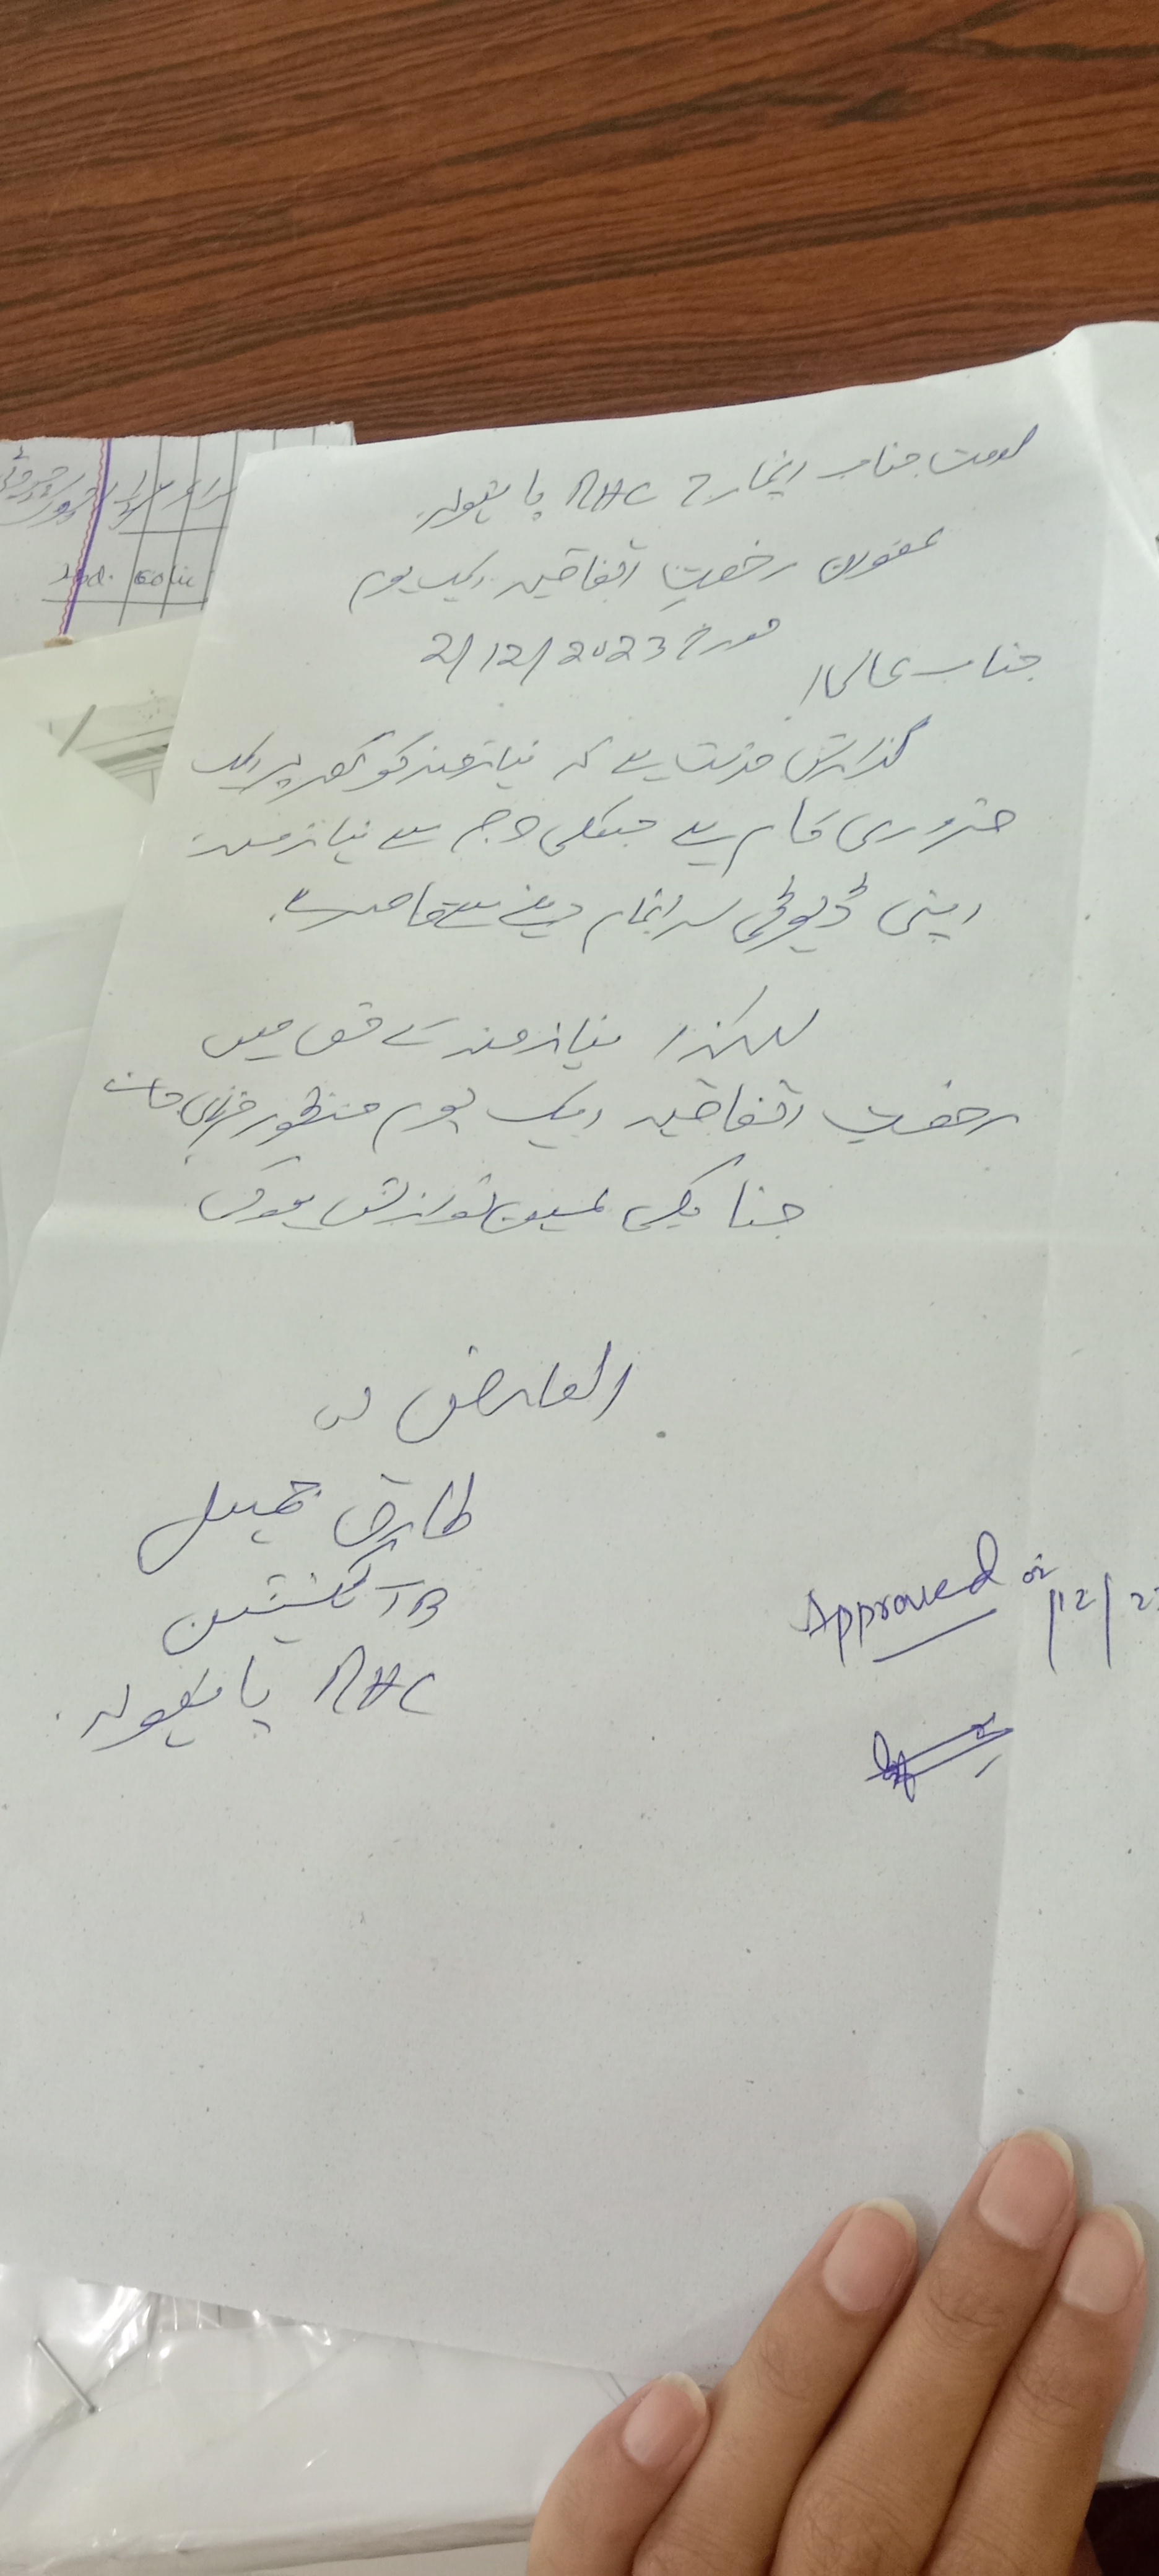 بخدمت جناب انچارج RHC پایتولہ
عنوان رخصت اتفاقیہ ایک یوم
مورخہ 2/12/2023
جناب عالی!
گذارش خدمت ہے کہ نیازمند کو گھر پر ایک
ضروری کام ہے جسکی وجہ سے نیازمند
اپنی ڈیوٹی سرانجام دینے سے قاصر ہے
لہذا نیازمند کے حق میں
رخصت اتفاقیہ ایک یوم منظور فرمائی جائے
جناب کی عین نوازش ہوگی
العارض
طارق جمیل
TB ٹیکنیشن
RHC پایتولہ
Approved
02/12/23